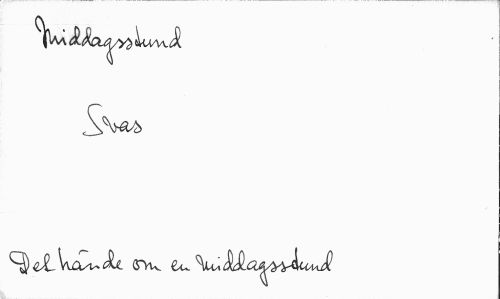 Middagsstund
Svas
Det hände om en middagsstund